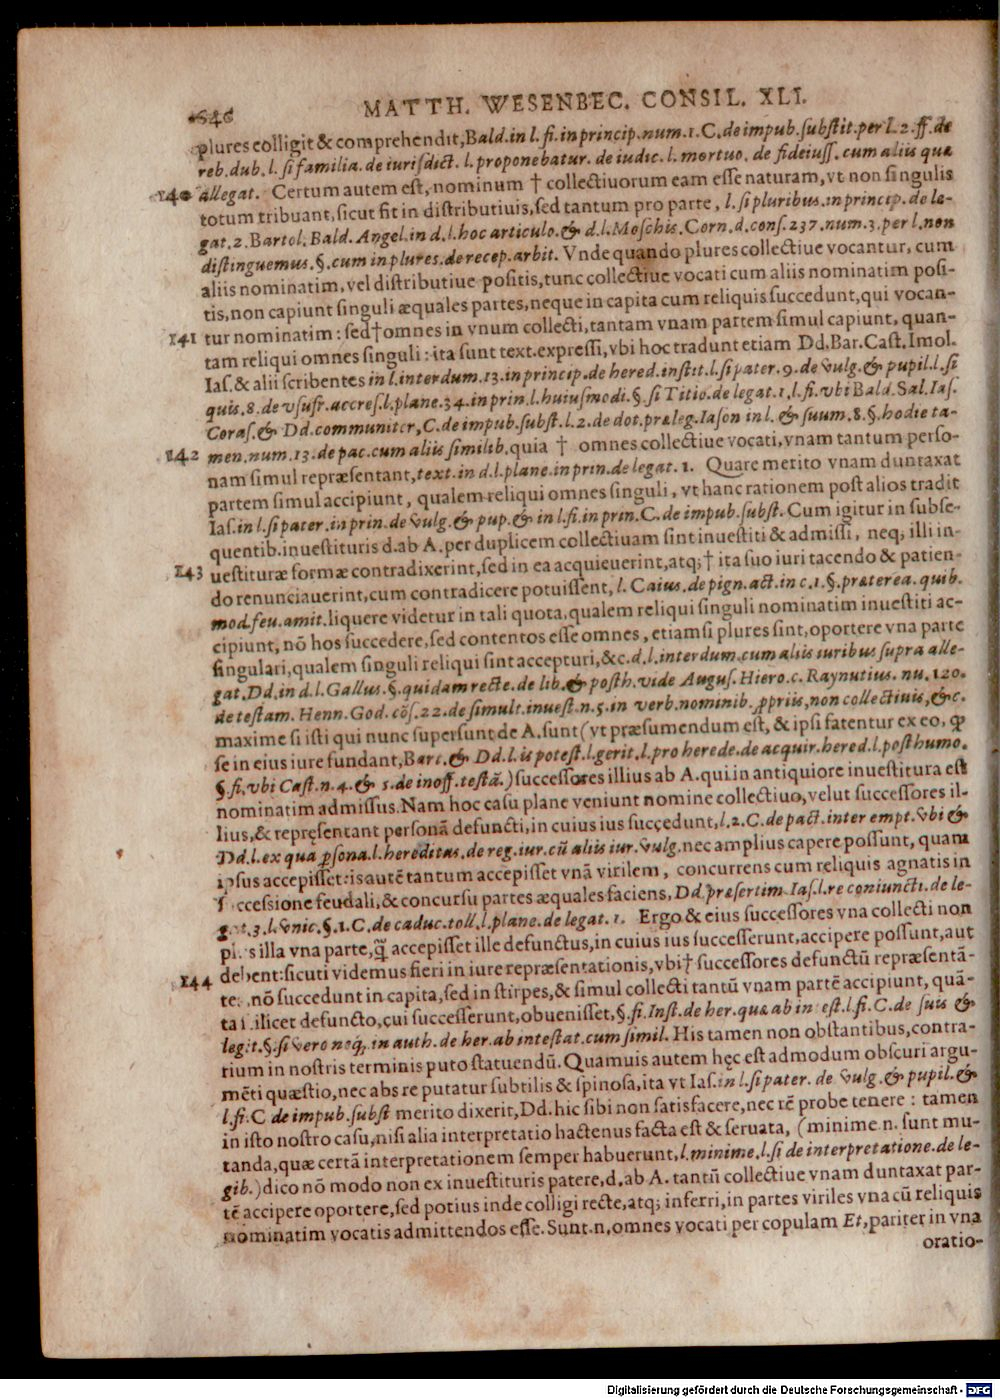 646 MATTH. WESENBEC. CONSIL. XLI.
plures colligit & comprehendit, Bald. in l. fi. in princip. num. 1. C. de impub. substit. per l. 2. ff. de
reb. dub. l. si familia. de iurisdict. l. proponebatur. de iudic. l. mortuo. de fideiuss. cum aliis quæ
140 allegat. Certum autem est, nominum † collectiuorum eam esse naturam, vt non singulis
totum tribuant, sicut fit in distributiuis, sed tantum pro parte, l. si pluribus. in princip. de le-
gat. 2. Bartol. Bald. Angel. in d. l. hoc articulo. & d. l. Moschis. Corn. d. cons. 237. num. 3. per l. non
distinguemus. §. cum in plures. de recep. arbit. Vnde quando plures collectiue vocantur, cum
aliis nominatim, vel distributiue positis, tunc collectiue vocati cum aliis nominatim posi-
tis, non capiunt singuli æquales partes, neque in capita cum reliquis succedunt, qui vocan-
141 tur nominatim: sed † omnes in vnum collecti, tantam vnam partem simul capiunt, quan-
tam reliqui omnes singuli: ita sunt text. expressi, vbi hoc tradunt etiam Dd. Bar. Cast. Imol.
Ias. & alii scribentes in l. interdum. 13. in princip. de hered. instit. l. si pater. 9. de vulg. & pupil. l. si
quis. 8. de vsufr. accres. l. plane. 34. in prin. l. huiusmodi. §. si Titio. de legat. 1. l. fi. vbi Bald. Sal. Ias.
Coras. & Dd. communiter, C. de impub. subst. l. 2. de dot. præleg. Iason in l. & suum. 8. §. hodie ta-
142 men. num. 13. de pac. cum aliis similib. quia † omnes collectiue vocati, vnam tantum perso-
nam simul repræsentant, text. in d. l. plane. in prin. de legat. 1. Quare merito vnam duntaxat
partem simul accipiunt, qualem reliqui omnes singuli, vt hanc rationem post alios tradit
Ias. in l. si pater. in prin. de vulg. & pup. & in l. fi. in prin. C. de impub. subst. Cum igitur in subse-
quentib. inuestituris d. ab A. per duplicem collectiuam sint inuestiti & admissi, neq; illi in-
143 uestituræ formæ contradixerint, sed in ea acquieuerint, atq; † ita suo iuri tacendo & patien-
do renunciauerint, cum contradicere potuissent, l. Caius. de pign. act. in c. 1. §. præterea. quib.
mod. feu. amit. liquere videtur in tali quota, qualem reliqui singuli nominatim inuestiti ac-
cipiunt, nō hos succedere, sed contentos esse omnes, etiamsi plures sint, oportere vna parte
singulari, qualem singuli reliqui sint accepturi, &c. d. l. interdum. cum aliis iuribus supra alle-
gat. Dd. in d. l. Gallus. §. quidam recte. de lib. & posth. vide Augus. Hiero. c. Raynutius. nu. 120.
de testam. Henn. God. cōs. 22. de simult. inuest. n. 5. in verb. nominib. ꝓpriis, non collectiuis, &c.
maxime si isti qui nunc supersunt de A. sunt (vt præsumendum est, & ipsi fatentur ex eo, ꝙ
se in eius iure fundant, Bart. & Dd. l. is potest. l. gerit. l. pro herede. de acquir. hered. l. posthumo.
§. fi. vbi Cast. n. 4. & 5. de inoff. testā.) successores illius ab A. qui in antiquiore inuestitura est
nominatim admissus. Nam hoc casu plane veniunt nomine collectiuo, velut successores il-
lius, & repręsentant personā defuncti, in cuius ius succedunt, l. 2. C. de pact. inter empt. vbi &
Dd. l. ex qua ꝑsona. l. hereditas. de reg. iur. cū aliis iur. vulg. nec amplius capere possunt, quam
ipsus accepisset: is autē tantum accepisset vnā virilem, concurrens cum reliquis agnatis in
successione feudali, & concursu partes æquales faciens, Dd. præsertim Ias. l. re coniuncti. de le-
gat. 3. l. vnic. §. 1. C. de caduc. toll. l. plane. de legat. 1. Ergo & eius successores vna collecti non
plus illa vna parte, q̄ accepisset ille defunctus, in cuius ius successerunt, accipere possunt, aut
144 debent: sicuti videmus fieri in iure repræsentationis, vbi † successores defunctū repræsentā-
tes, nō succedunt in capita, sed in stirpes, & simul collecti tantū vnam partē accipiunt, quā-
ta scilicet defuncto, cui successerunt, obuenisset, §. fi. Inst. de her. quæ ab intest. l. fi. C. de suis &
legit. §. si vero neq; in auth. de her. ab intestat. cum simil. His tamen non obstantibus, contra-
rium in nostris terminis puto statuendū. Quamuis autem hęc est admodum obscuri argu-
mēti quæstio, nec abs re putatur subtilis & spinosa, ita vt Ias. in l. si pater. de vulg. & pupil. &
l. fi. C de impub. subst merito dixerit, Dd. hic sibi non satisfacere, nec rē probe tenere: tamen
in isto nostro casu, nisi alia interpretatio hactenus facta est & seruata, (minime. n. sunt mu-
tanda, quæ certā interpretationem semper habuerunt, l. minime. l. si de interpretatione. de le-
gib.) dico nō modo non ex inuestituris patere, d. ab A. tantū collectiue vnam duntaxat par-
tē accipere oportere, sed potius inde colligi recte, atq; inferri, in partes viriles vna cū reliquis
nominatim vocatis admittendos esse. Sunt. n. omnes vocati per copulam Et, pariter in vna
oratio-
Digitalisierung gefördert durch die Deutsche Forschungsgemeinschaft - DFG